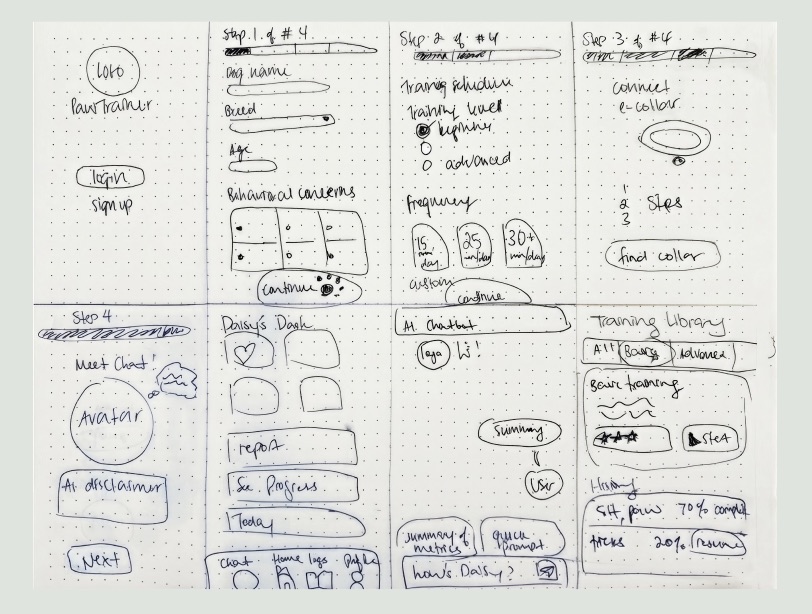 Logo
PawTrainer
login
sign up
Step 1 of #4
Dog name
Breed
Age
Behavioral concerns
continue
Step 2 of #4
Training schedule
Training level
beginner
advanced
Frequency
15 min/day
25 min/day
30+ min/day
custom
continue
Step 3 of #4
connect
e-collar
1
2 Steps
3
find collar
Step 4
Meet Chat!
Avatar
AI disclaimer
Next
Daisy's Dash
report
See Progress
Today
Chat Home logs Profile
AI Chatbot
logo Hi!
Summary
User
summary of
metrics
quick
prompt
how's Daisy?
Training Library
All Basic Advance
Basic training
Start
History
Sit, paw 70% complet
tricks 20% resume